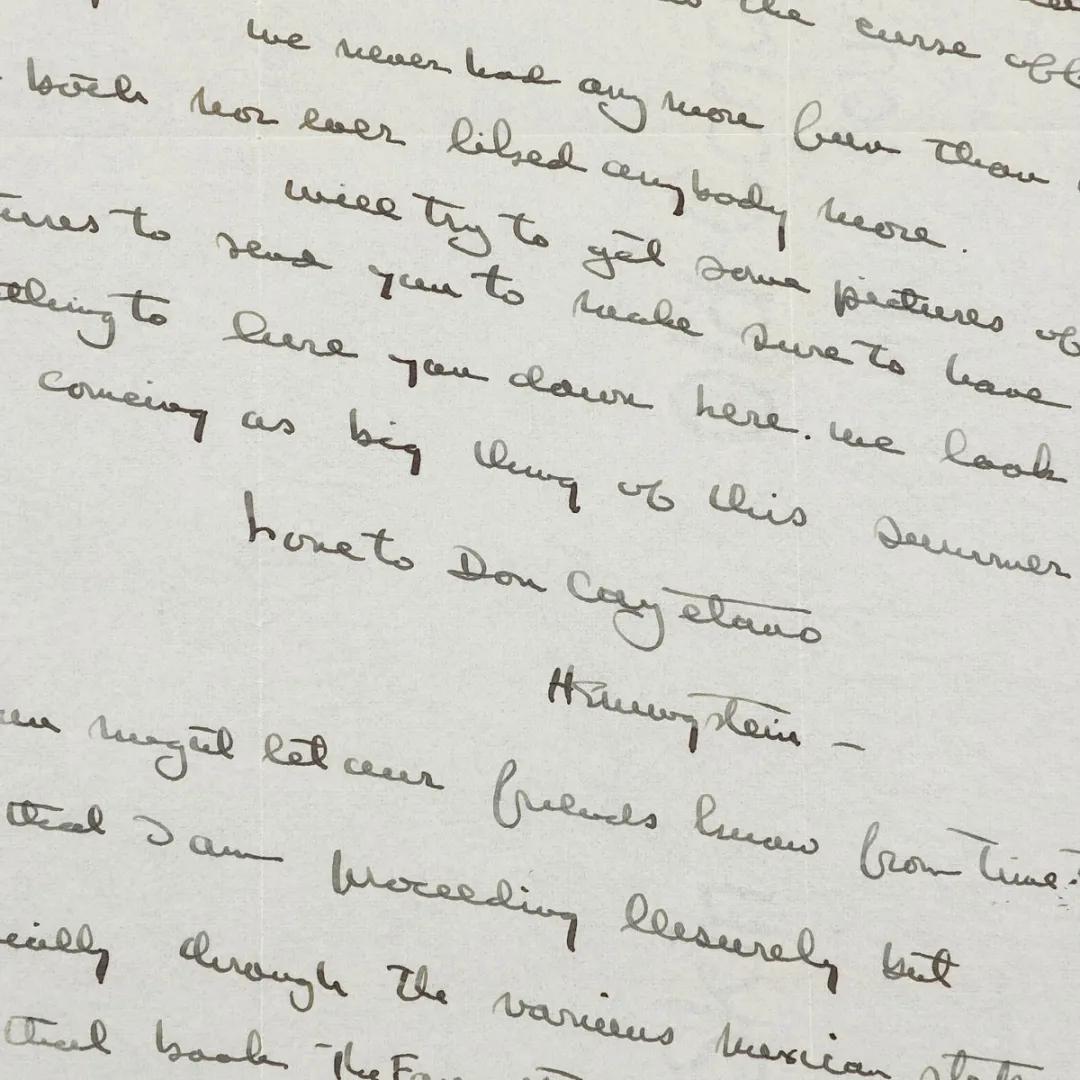 the curse of
we never had any more fun than
both nor ever liked anybody more.
will try to get some pictures of
tures to send you to make sure to have
thing to lure you down here. we look
coming as big thing of this summer
love to Don Cayetano
Hemingstein —
might let our friends know from time
that I am proceeding llesurely but
cially through the various mexican stat
that book The